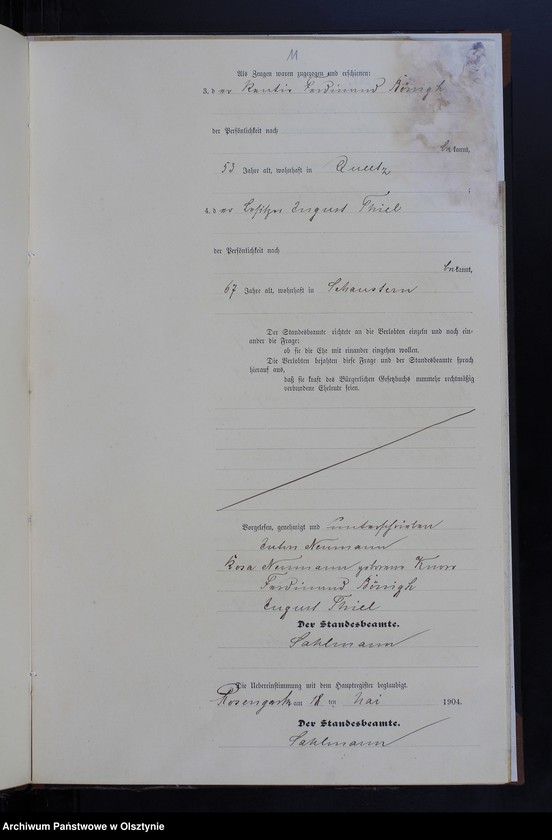 11
Als Zeugen waren zugezogen und erschienen:
3. der Rentier Ferdinand Bönigk
der Persönlichkeit nach
bekannt,
53 Jahre alt, wohnhaft in Queetz
4. der Besitzer August Thiel
der Persönlichkeit nach
bekannt,
67 Jahre alt, wohnhaft in Schaustern
Der Standesbeamte richtete an die Verlobten einzeln und nach ein-
ander die Frage:
ob sie die Ehe mit einander eingehen wollen.
Die Verlobten bejahten diese Frage und der Standesbeamte sprach
hierauf aus,
daß sie kraft des Bürgerlichen Gesetzbuchs nunmehr rechtmäßig
verbundene Eheleute seien.
Vorgelesen, genehmigt und unterschrieben
Neumann
Rosa Neumann geborene Knorr
Ferdinand Bönigk
August Thiel
Der Standesbeamte.
Sahlmann
Die Uebereinstimmung mit dem Hauptregister beglaubigt.
Rosengarth am 18 ten Mai 1904.
Der Standesbeamte.
Sahlmann
Archiwum Państwowe w Olsztynie